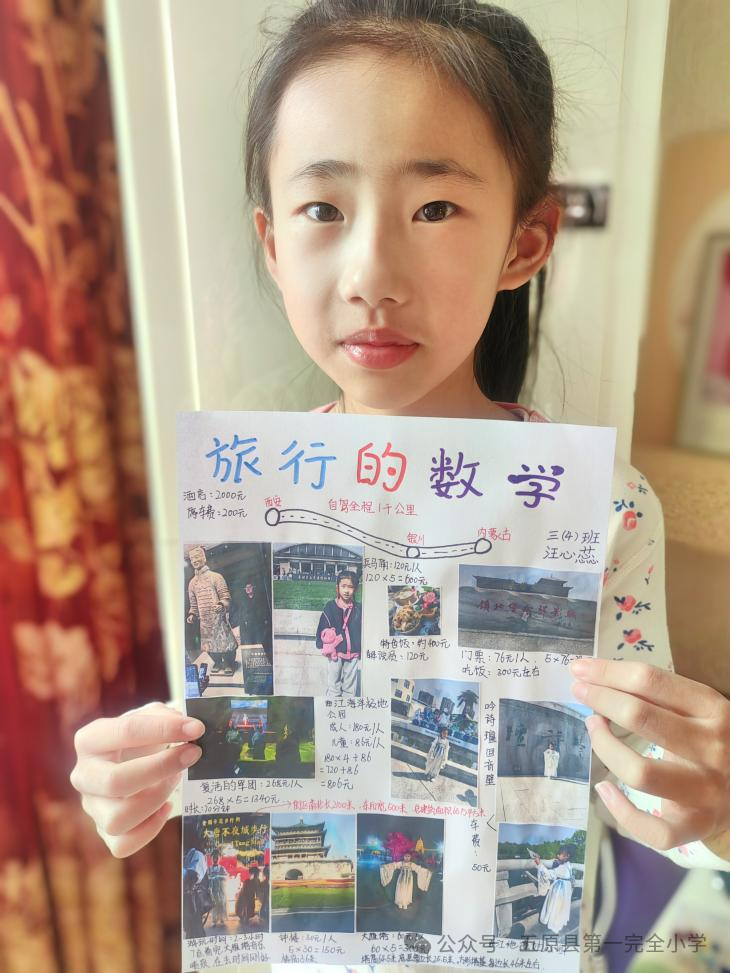 旅行的数学
酒店：2000元
停车费：200元
西安
自驾全程1千公里
银川
内蒙古
三(4)班
汪心蕊
兵马俑：120元1人
120×5=600元
特色饭：约400元
解说员：120元
镇北堡西部影城
门票：76元1人
吃饭：300元左右
曲江海洋极地
公园
成人：180元1人
儿童：86元1人
180×4+86
=720+86
=806元
复活的军团：268元1人
268×5=1340元
时长：70分钟
吟诗
车费：
50元
大唐不夜城步行
钟楼：30元1人
5×30=150元
楼高36米
大雁塔：60元1人
60×5=300元
公众号·五原县第一完全小学